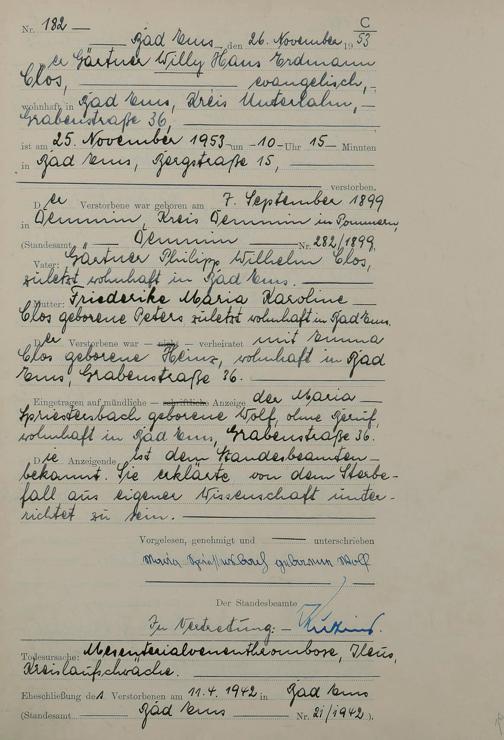 Nr. 182 — C
Bad Ems, den 26. November 1953
Der Gärtner Willy Hans Erdmann
Clos, — evangelisch, —
wohnhaft in Bad Ems, Kreis Unterlahn, —
Grabenstraße 36, —
ist am 25. November 1953 um — 10 — Uhr 15 — Minuten
in Bad Ems, Bergstraße 15, —
verstorben.
Der Verstorbene war geboren am 7. September 1899
in Demmin, Kreis Demmin in Pommern,
(Standesamt — Demmin — Nr. 282/1899.
Vater: Gärtner Philipp Wilhelm Clos,
zuletzt wohnhaft in Bad Ems. —
Mutter: Friederike Maria Karoline —
Clos geborene Peters zuletzt wohnhaft in Bad Ems.
Der Verstorbene war — nicht — verheiratet mit Emma
Clos geborene Heinz, wohnhaft in Bad
Ems, Grabenstraße 36. —
Eingetragen auf mündliche — schriftliche Anzeige der Maria —
Spriestersbach geborene Wolf, ohne Beruf,
wohnhaft in Bad Ems, Grabenstraße 36.
Die Anzeigende ist dem Standesbeamten —
bekannt. Sie erklärte von dem Sterbe-
fall aus eigener Wissenschaft unter-
richtet zu sein. —
Vorgelesen, genehmigt und — unterschrieben
Maria Spriestersbach geborene Wolf
Der Standesbeamte
In Vertretung: —
Todesursache: Mesenterialvenenthrombose, Ileus,
Kreislaufschwäche. —
Eheschließung des Verstorbenen am 11.4.1942 in Bad Ems
(Standesamt — Bad Ems — Nr. 21/1942).